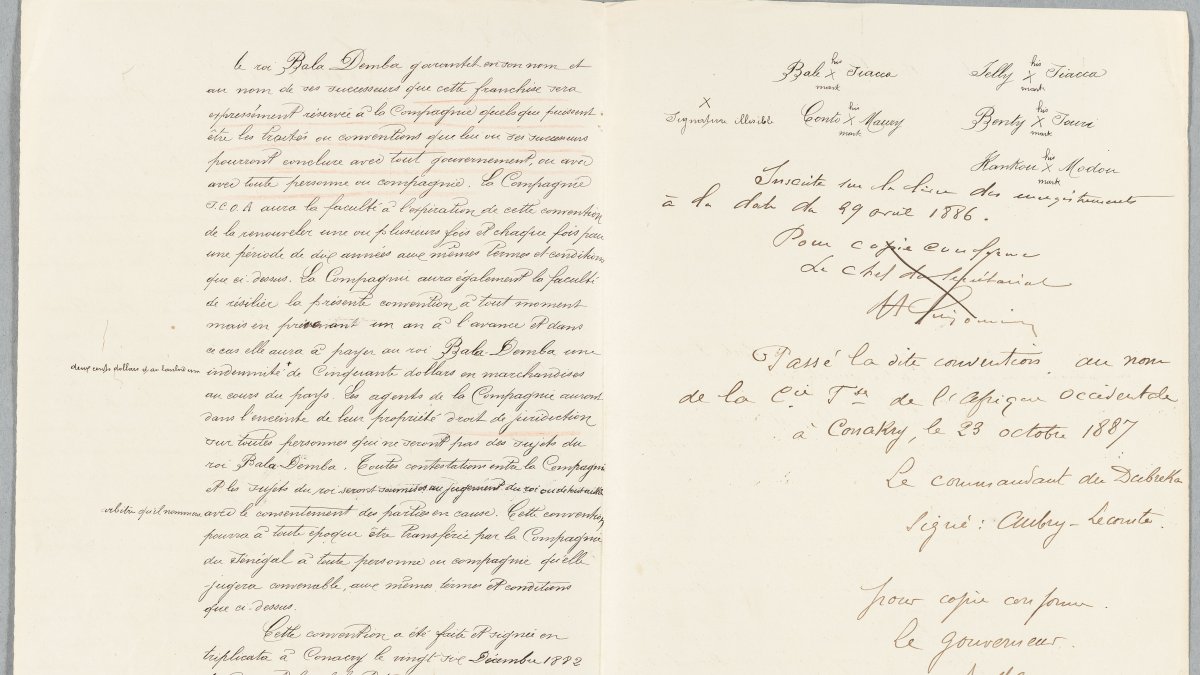 le roi Bala Demba garantit en son nom et
au nom de ses successeurs que cette franchise sera
expressément réservée à la Compagnie quels que puissent
être les traités ou conventions que lui ou ses successeurs
pourront conclure avec tout gouvernement, ou avec
avec toute personne ou compagnie. La Compagnie
aura la faculté à l'expiration de cette convention
de la renouveler une ou plusieurs fois et chaque fois pour
une période de dix années aux mêmes termes et conditions
que ci-dessus. La Compagnie aura également la faculté
de résilier la présente convention à tout moment
mais en prévenant un an à l'avance et dans
ce cas elle aura à payer au roi Bala-Demba une
deux cents dollars et au
indemnité + de Cinquante dollars en marchandises
au cours du pays. Les agents de la Compagnie auront
dans l'enceinte de leur propriété droit de juridiction
sur toutes personnes qui ne seront pas des sujets du
roi Bala-Demba. Toutes contestations entre la Compagnie
et les sujets du roi seront soumises au jugement du roi ou de tout autre
arbitre qu'il nommera
avec le consentement des parties en cause. Cette convention
pourra à toute époque être transférée par la Compagnie
du Sénégal à toute personne ou compagnie qu'elle
jugera convenable, aux mêmes termes et conditions
que ci-dessus.
Cette convention a été faite et signée en
triplicata à Conacry le vingt six Décembre 1882
his his
Bale x Tiacca Telly x Tiacca
mark mark
x his his
Signature illisible Conto x Maury Benty x Touri
mark mark
his
Kankou x Modou
mark
Inscrite sur le livre des enregistrements
à la date du 29 avril 1886.
Pour copie conforme
Le Chef du Secrétariat
Passé la dite convention au nom
de la Cie Fse de l'Afrique Occidentale
à Conakry, le 23 octobre 1887
Le commandant du Dubreka
Signé: Aubry-Lecomte.
pour copie conforme.
le gouverneur.